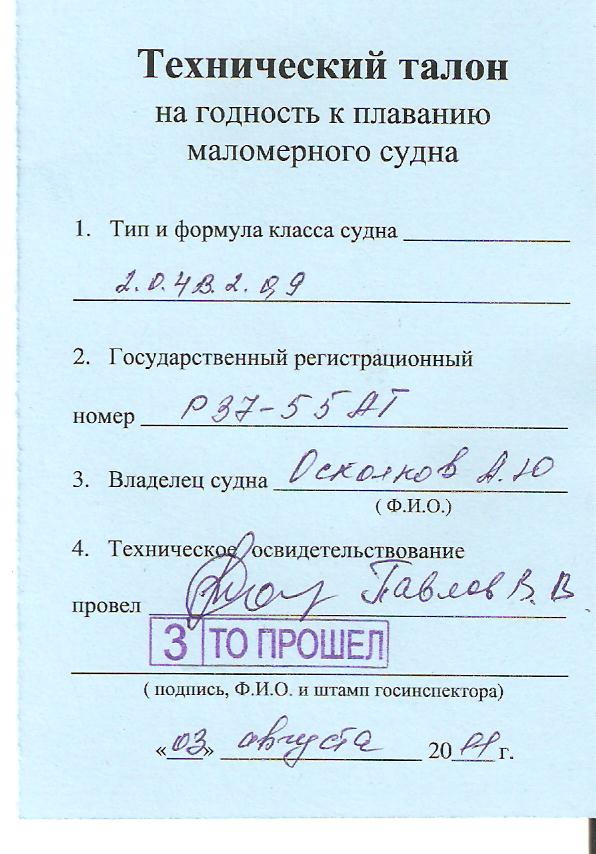 Технический талон
на годность к плаванию
маломерного судна
1. Тип и формула класса судна
2.0.4В.2.0,9
2. Государственный регистрационный
номер Р37-55АТ
3. Владелец судна Осколков А.Ю
( Ф.И.О.)
4. Техническое освидетельствование
провел Павлов В. В
3 ТО ПРОШЕЛ
( подпись, Ф.И.О. и штамп госинспектора)
«03» августа 2011 г.